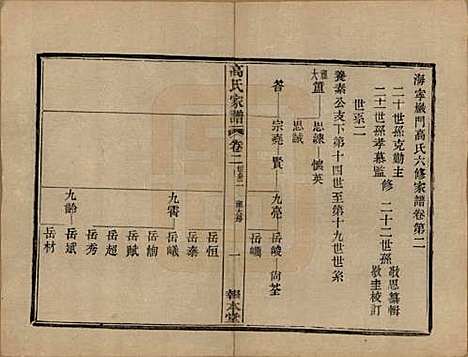 海寧巖門高氏六修家譜卷第二
二十世孫克勤主
二十一世孫孝慕監
修
二十二世孫
敬思纂輯
敬圭校訂
世系二
養素公支下第十四世至第十九世世系
思諫
懷英
思誠
宗堯
賢
九亮
岳峻
尙荃
高氏家譜
卷二
一
報本堂
九霄
岳恒
岳泰
岳峋
岳賦
岳超
岳秀
九齡
岳斌
岳材